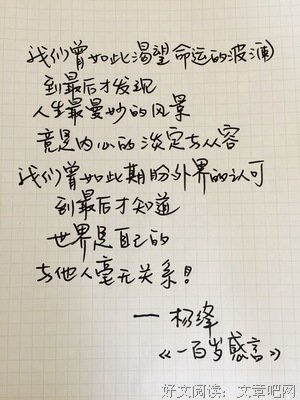 我们曾如此渴望命运的波澜
到最后才发现
人生最曼妙的风景
竟是内心的淡定与从容
我们曾如此期盼外界的认可
到最后才知道
世界是自己的
与他人毫无关系!
— 杨绛
《一百岁感言》
好文阅读:文章吧网